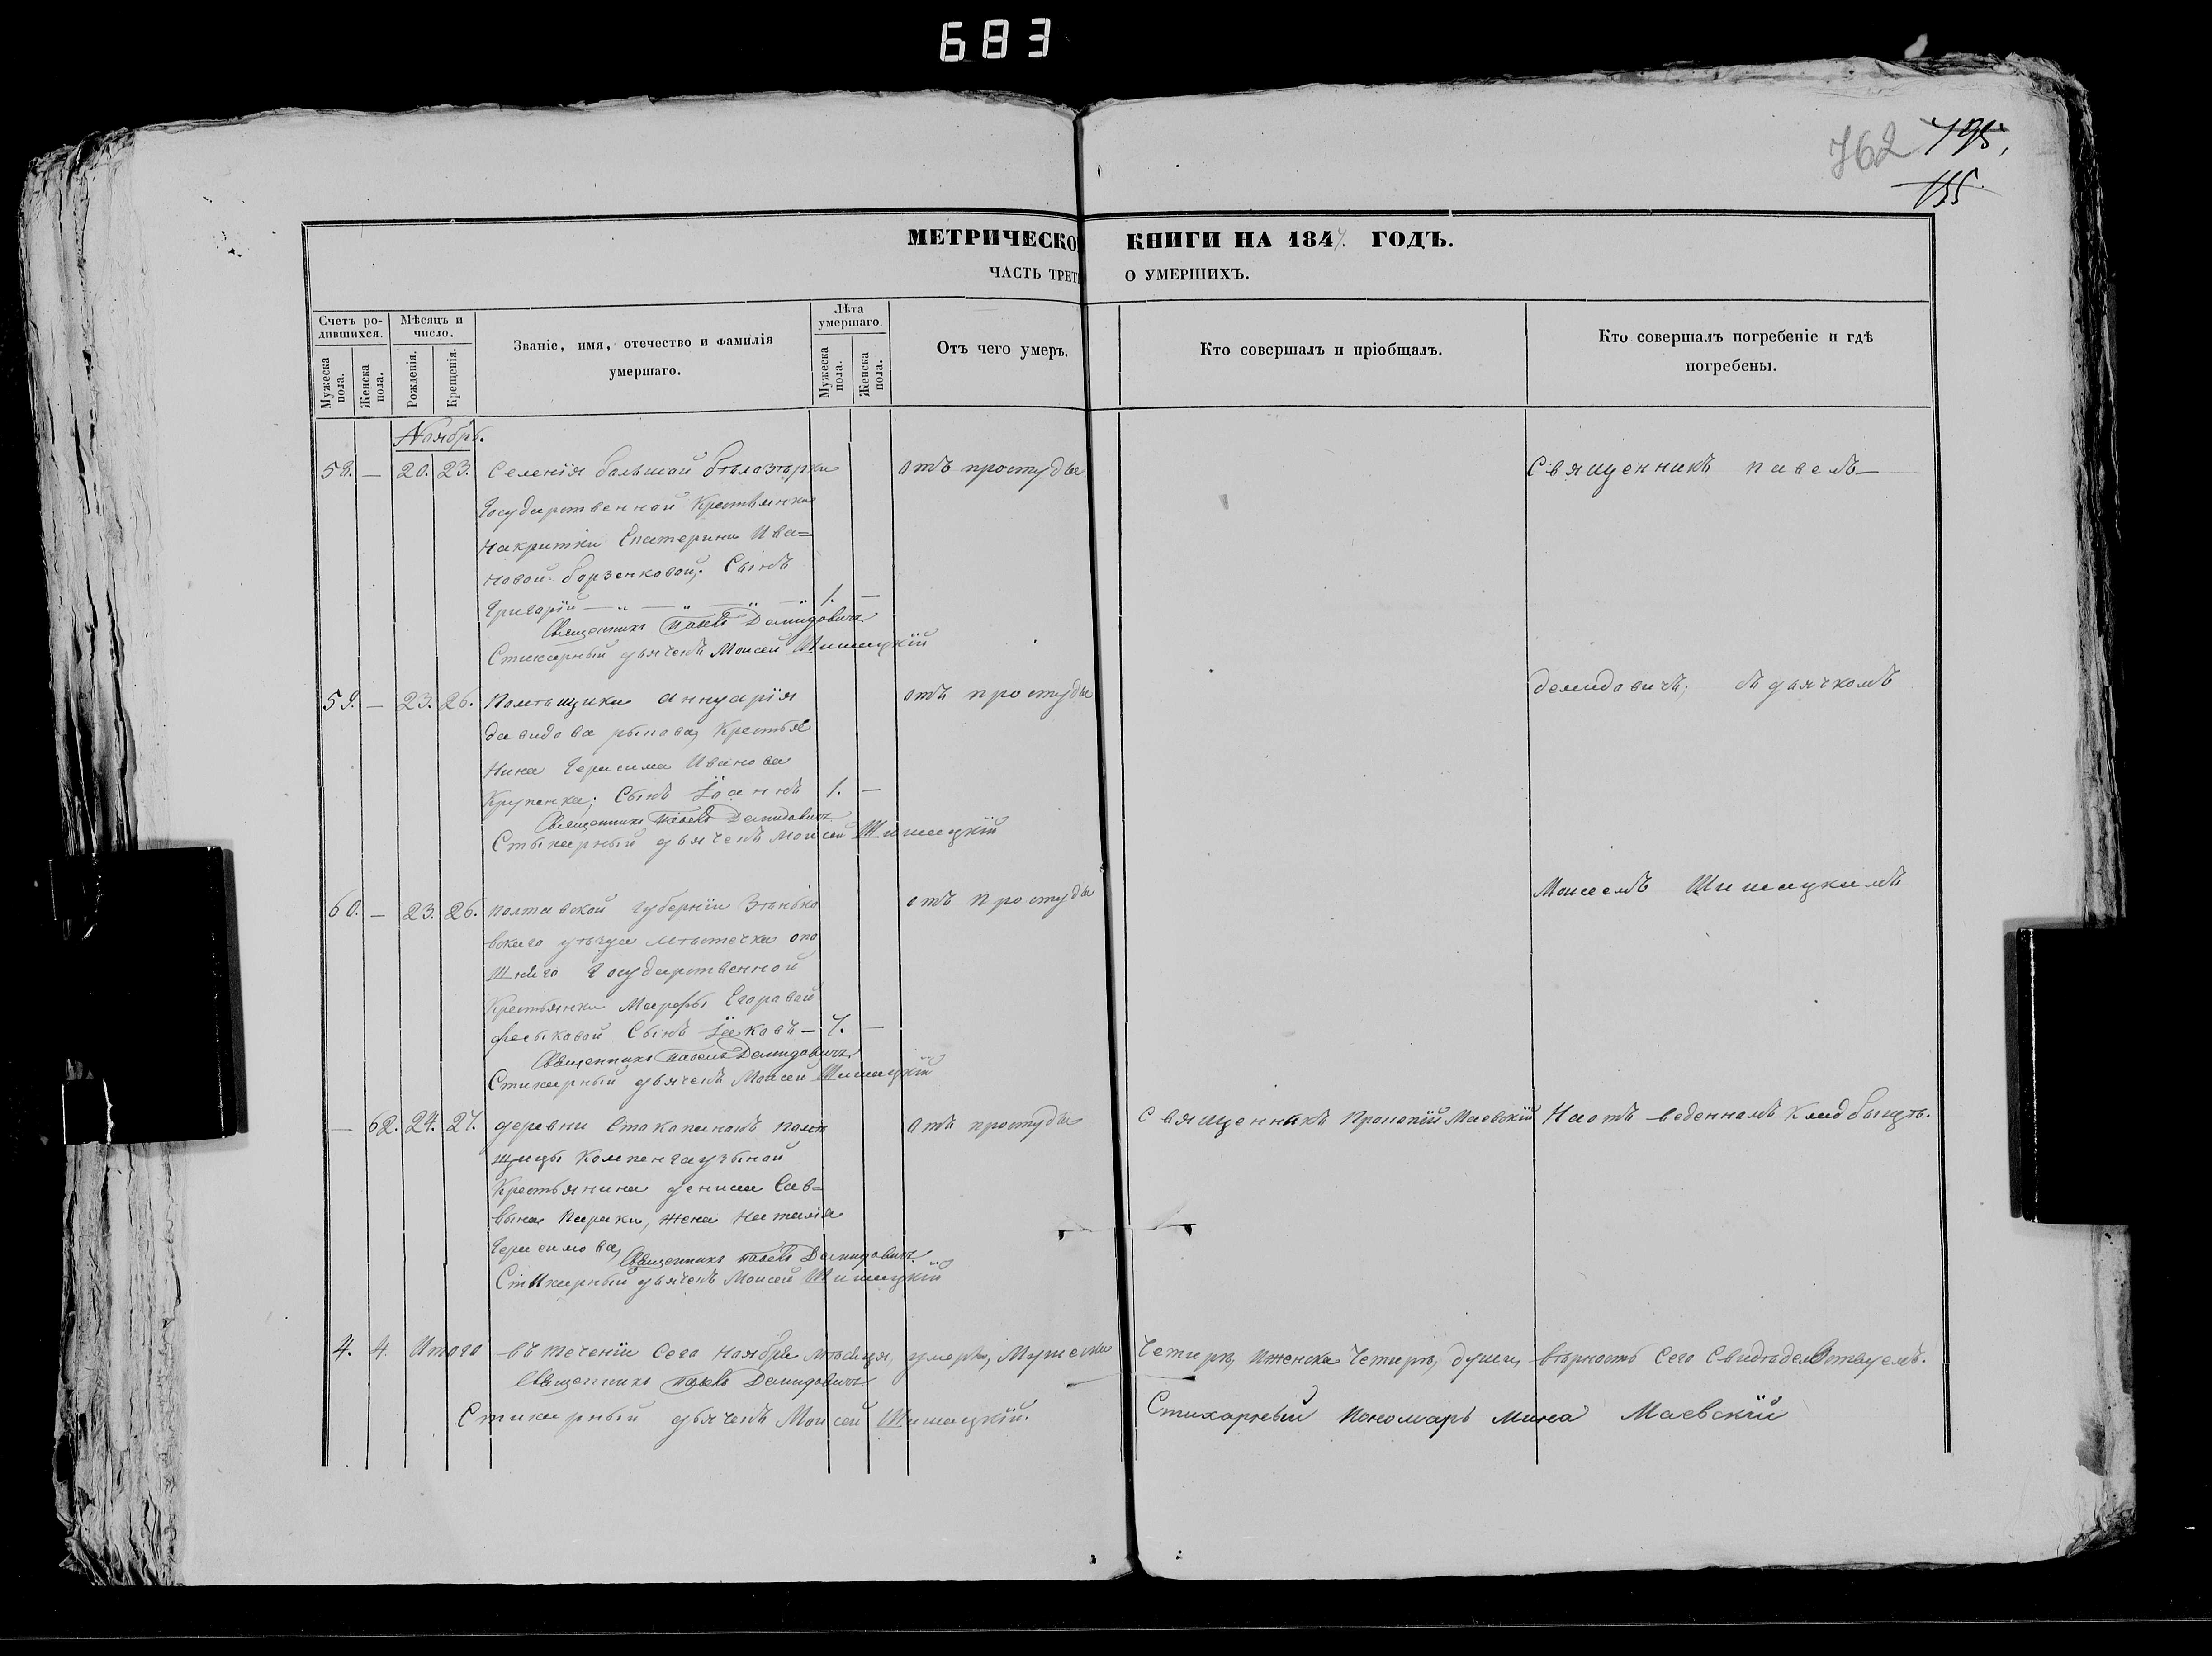 683
762 795,
155.
МЕТРИЧЕСКО КНИГИ НА 1847. ГОДЪ.
ЧАСТЬ ТРЕТ О УМЕРШИХЪ.
Счетъ родившихся.
Мѣсяцъ и число.
Званіе, имя, отечество и фамилія умершаго.
Лѣта умершаго.
Отъ чего умеръ.
Кто совершалъ и пріобщалъ.
Кто совершалъ погребеніе и гдѣ погребены.
Мужеска пола.
Женска пола.
Рожденія.
Крещенія.
Мужеска пола.
Женска пола.
Ноябрь.
58. — 20. 23. Селенія большой бѣлозѣрки отъ простуды. Священникъ павелъ
Государственной Крестьянки
накритки Екатерины Ива=
новой борзенковой; Сынъ
Григорій — „ — „ — „ — „ 1. —
Священникъ Павелъ Демидовичъ
Стихарный дьячекъ Моисей Шишацкій
59. — 23. 26. Помѣщика Аннуарія отъ простуды демидовичъ; съ дьячкомъ
давидова рыкова, Крестья
нина Герасима Иванова
Крупенка; Сынъ Іоаннъ 1. —
Священникъ Павелъ Демидовичъ
Стыкарный дьячекъ Моисей Шишацкій
60. — 23. 26. полтавской губерніи Зѣнько отъ простуды Моисеемъ Шишацкимъ
вскаго уѣзда мѣстечка опо
шнего Государственной
Крестьянки Марфы Егоравой
фесыковой Сынъ Іаковъ — 7. —
Священникъ Павелъ Демидовичъ
Стихарный дьячекъ Моисей Шишацкій
— 62. 24. 27. деревни Стокопанокъ помѣ отъ простуды Священникъ Прокопій Маевскій На отъ веденномъ Кладбыщѣ.
щицы Компенгаузыной
Крестьянина дениса Сав=
вына Параки, жена Наталія
Герасимова, Священникъ Павелъ Демидовичъ
Стыкарный дьячекъ Моисей Шишацкій
4. 4. Итого въ теченіи Сего Ноября мѣсяця, умерло, Мужеска Четыре, Иженска Четыре, душы, вѣрность Сего Свидѣделствуемъ.
Священникъ Павелъ Демидовичъ
Стихарный дьячекъ Моисей Шишацкій. Стихарный Пономарь Мина Маевскій